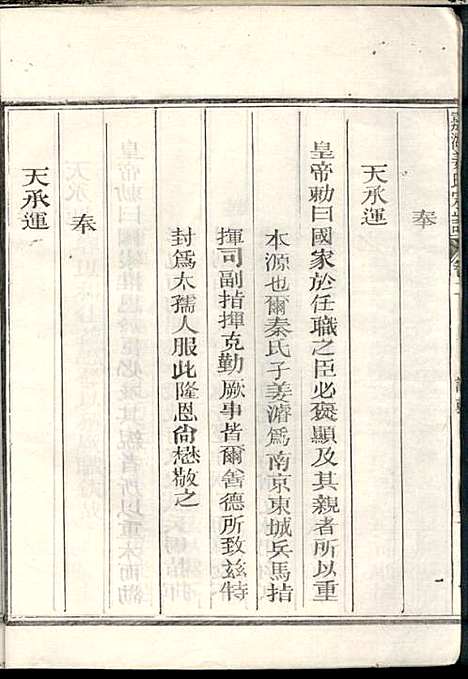 奉
天承運
皇帝勅曰國家於任職之臣必褒顯及其親者所以重
本源也爾秦氏子姜濬爲南京東城兵馬指
揮司副指揮克勤厥事皆爾善德所致茲特
封爲太孺人服此隆恩尙懋敬之
奉
天承運